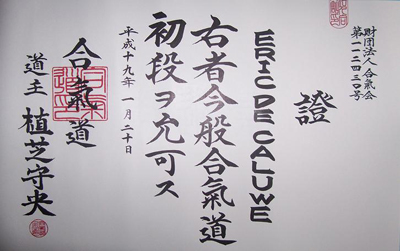 財団法人 合氣会
第一一二四三〇号
證
ERIC DE CALUWE
右者今般合氣道
初段ヲ允可ス
平成十九年 一月二十日
合氣道
道主 植芝守央